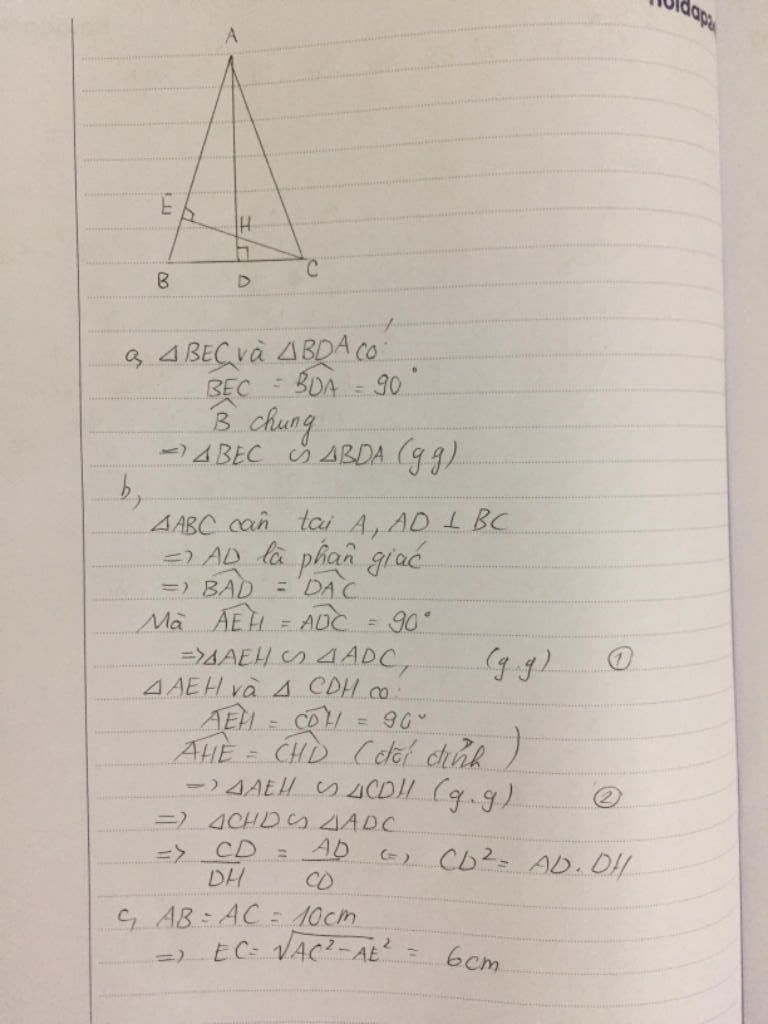 Hoidap
A
E
H
B
D
C
a, △BEC và △BDA có:
$\widehat{BEC}$ = $\widehat{BDA}$ = 90°
$\widehat{B}$ chung
=> △BEC ∽ △BDA (g g)
b,
△ABC cân tại A, AD ⊥ BC
=> AD là phân giác
=> $\widehat{BAD}$ = $\widehat{DAC}$
Mà $\widehat{AEH}$ = $\widehat{ADC}$ = 90°
=> △AEH ∽ △ADC, (g.g) ①
△AEH và △ CDH có:
$\widehat{AEH}$ = $\widehat{CDH}$ = 90°
$\widehat{AHE}$ = $\widehat{CHD}$ (đối đỉnh)
=> △AEH ∽ △CDH (g.g) ②
=> △CHD ∽ △ADC
=> $\frac{CD}{DH}$ = $\frac{AD}{CD}$ <=> CD² = AD.DH
c, AB = AC = 10cm
=> EC = $\sqrt{AC^2 - AE^2}$ = 6cm